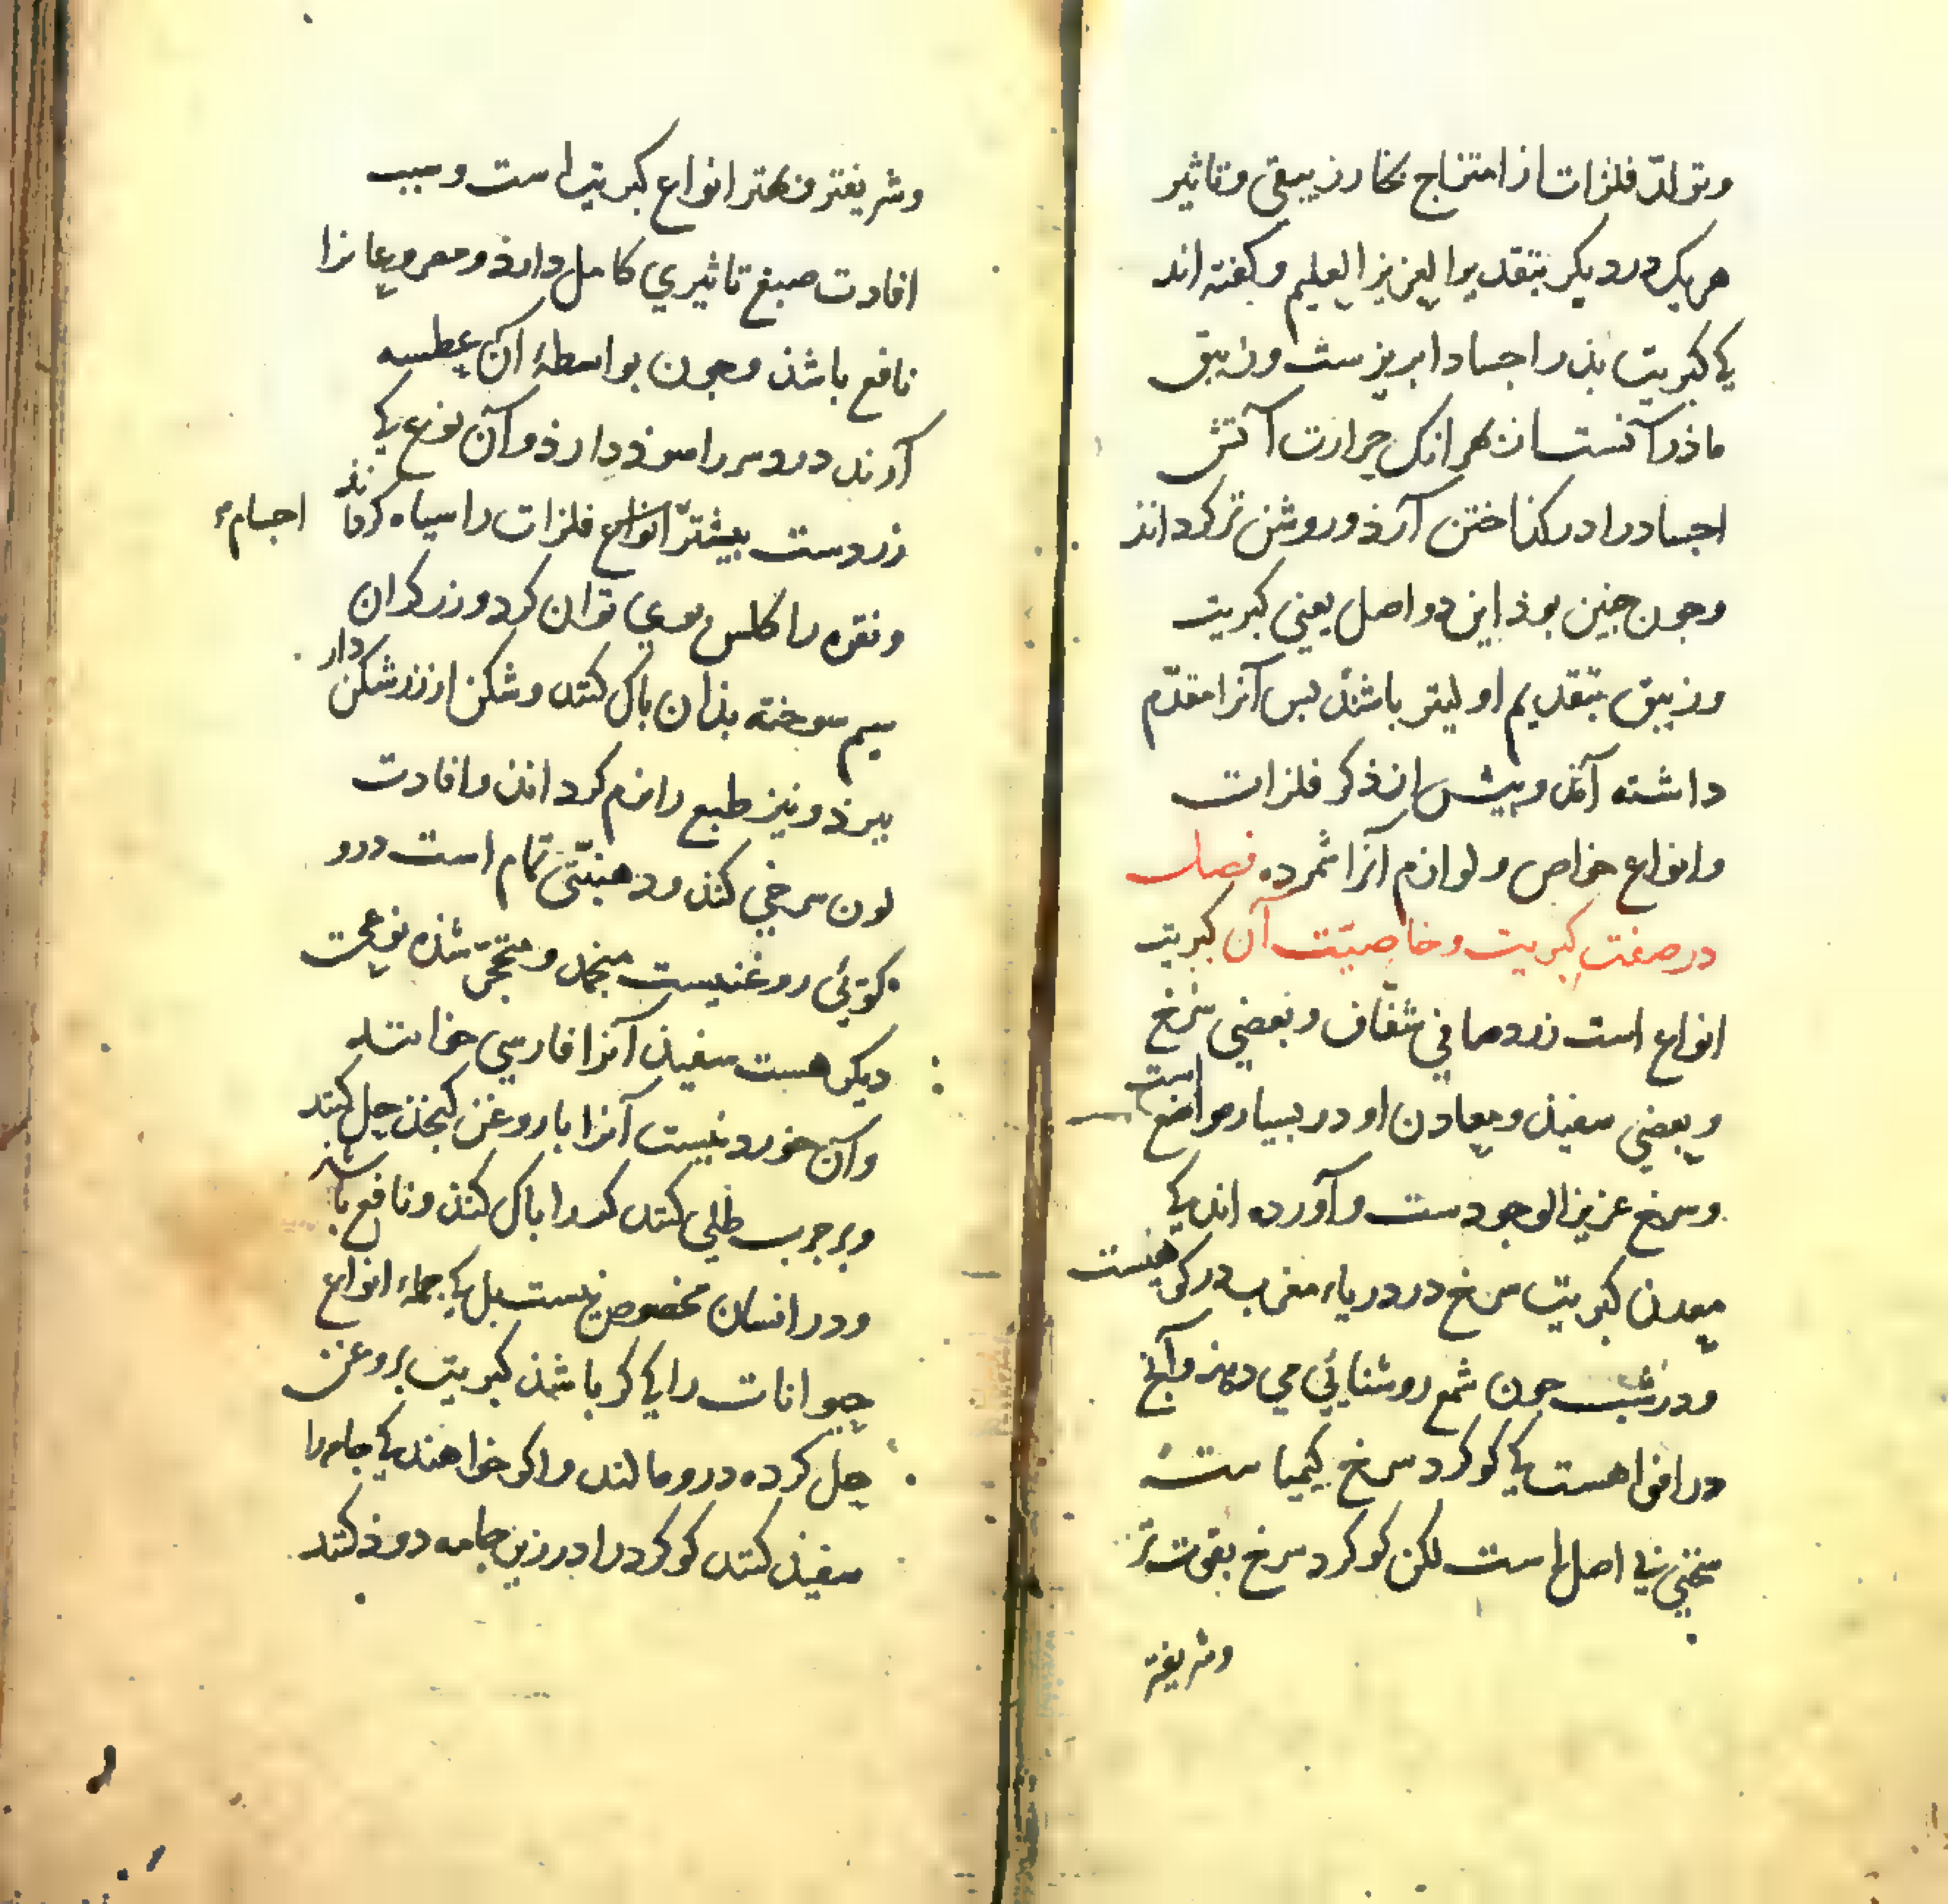 وتولد فلزات از امتزاج بخار زیبقی وتاثیر
هر یک در دیگر بتقدیر العزیز العلیم و گفته اند
کی کبریت بذر اجساد ابریزست وزیبق
ماذر آنست از بهر انک حرارت آتش
اجساد را در کذاختن آرذ و روشن تر کرداند
وجون جنین بوذ این دو اصل یعنی کبریت
وزیبق بتقدیم اولیتر باشند بس آنرا مقدّم
داشته آمذ و بیش از ذکر فلزات
وانواع خواص و لوازم آنرا شمرده فصل
در صفت کبریت و خاصیّت آن کبریت
انواع است زرد صافی شفّاف و بعضی سُرخ
و بعضی سفیذ و معادن او در بسیار مواضع است
وسرخ عزیز الوجودست و آورده اند کی
معدن کبریت سرخ در دریاء مغرب در کوهیست
ودر شب جون شمع روشنائی می دهذ و آنج
در افواهست کی کوکرد سرخ کیمیاست
سخنی بی اصل است لکن کوکرد سرخ بقوت تر
وشریفتر
وشریفتر وبهتر انواع کبریت است و سبب
افادت صبغ تاثیری کامل دارذ و مصروعانرا
نافع باشذ و جون بواسطهٔ آن عطسه
آرند درد سر را سوذ دارذ و آن نوع کی
زردست بیشتر انواع فلزات را سیاه کرداند اجسام
ونقره را کلس بوی توان کرد و زرکران
سیم سوخته بذان باک کنند و شکن از زر شکن دار
ببرذ و نیز طبع را نرم کرداند و افادت
لون سرخی کند و دهنیتی تمام است درو
کوئی روغنیست منجمد و متحجّر شذه نوعیست
دیکر هست سفیذ آنرا فارسی خوانند
وآن خوردنیست آنرا با روغن کنجذ حل کنند
وبر جرب طلی کنند کر را باک کند و نافع باشد
ودر انسان مخصوص نیست بل کی جملهٔ انواع
حیوانات را کی کر باشذ کبریت بروغن
حل کرده درو مالند و اکر خواهند کی جامه را
سفیذ کنند کوکرد را در زیر جامه دوذ کنند